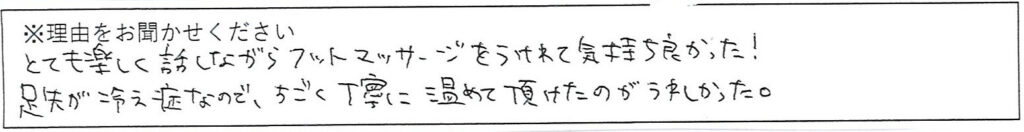 ※理由をお聞かせください
とても楽しく話しながらフットマッサージをうけれて気持ち良かった!
足先が冷え症なので、すごく丁寧に温めて頂けたのがうれしかった。